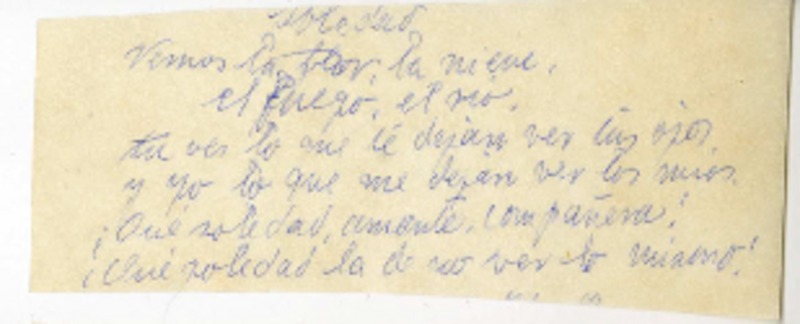 Soledad
Vemos la flor, la nieve,
el fuego, el río.
tu ves lo que te dejan ver tus ojos
y yo lo que me dejan ver los mios.
¡Qué soledad, amante, compañera!
¡Qué soledad la de no ver lo mismo!